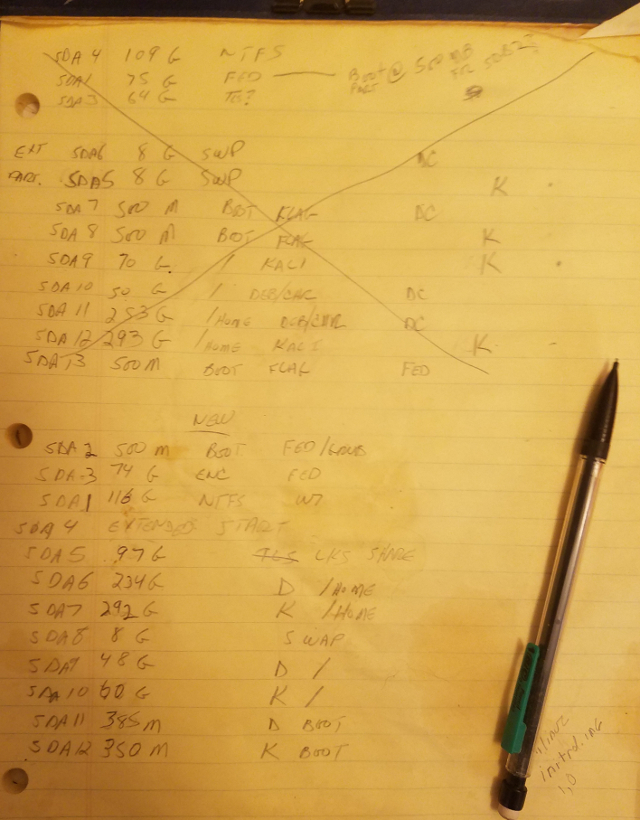 SDA 4 109 G NTFS
SDA1 75 G FED — Boot @ 500 MB
PART
SDA3 64 G TES?
EXT SDA6 8 G SWP DC
PART. SDA5 8 G SWP K
SDA 7 500 M BOOT FLAG DC
SDA 8 500 M BOOT FLAG K
SDA9 70 G / KALI K
SDA 10 50 G / DEB/CAR DC
SDA 11 253 G /HOME DEB/CAR DC
SDA 12 293 G /HOME KALI K
SDA 13 500 M BOOT FLAG FED
NEW
SDA 2 500 M BOOT FED/GRUB
SDA-3 74 G ENC FED
SDA1 116 G NTFS W7
SDA 4 EXTENDED START
SDA5 .97 G LKS SHARE
SDA6 234 G D /HOME
SDA7 292 G K /HOME
SDA8 8 G SWAP
SDA9 48 G D /
SDA 10 60 G K /
SDA11 385 M D BOOT
SDA12 350 M K BOOT
initrd.img
1,0